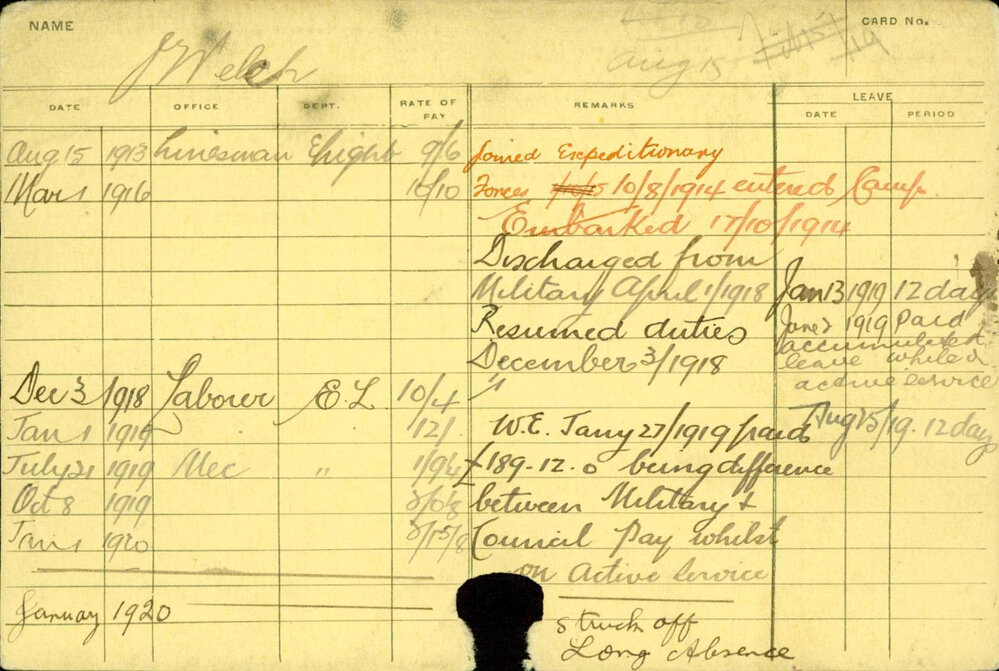 NAME
CARD No.
Aug 15
J Welch
DATE OFFICE DEPT. RATE OF PAY REMARKS LEAVE
DATE PERIOD
Aug 15 1913 Linesman 9/6 Joined Expeditionary
Mar 1 1916 10/10 Forces 10/8/1914 entered Camp
Embarked 17/10/1914
Discharged from
Military April 1/1918 Jan 13 1919 12 days
Resumed duties June 2 1919 Paid
December 3/1918 accumulated
leave while on
active service
Dec 3 1918 Laborer E.L 10/4 "
Jan 1 1919 12/ W.E. Jany 27/1919 paid Aug 25/19. 12 days
July 21 1919 Mec " 1/9¼ £189-12.0 being difference
Oct 8 1919 between Military &
Jan 1 1920 Council Pay whilst
on Active Service
January 1920 struck off
Long Absence